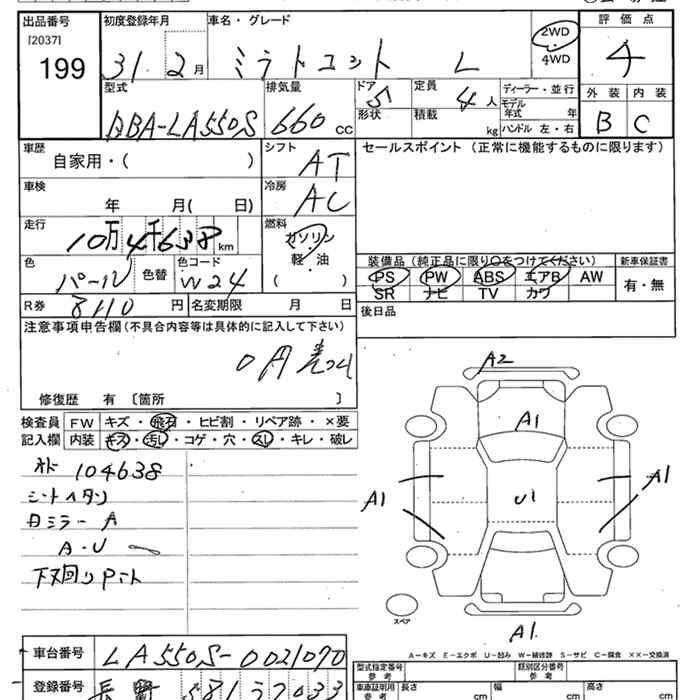 出品番号
[2037]
199
初度登録年月
31. 2月
車名・グレード
ミラトコット L
2WD
4WD
評価点
4
外装 内装
B C
型式
DBA-LA550S
排気量
660cc
ドア
5
形状
定員
4人
積載 kg
ディーラー・並行
モデル年式 年
ハンドル 左・右
車歴
自家用・( )
シフト
AT
セールスポイント (正常に機能するものに限ります)
車検
年 月( 日)
冷房
AC
走行
10万4千638km
燃料
ガソリン
軽・油
( )
色
パール
色替
色コード
W24
装備品 (純正品に限り○をつけてください)
PS PW ABS エアB AW
SR ナビ TV カワ
新車保証書
有・無
R券
8110円
名変期限 月 日
後日品
注意事項申告欄(不具合内容等は具体的に記入して下さい)
修復歴 有 〔箇所 〕
検査員
記入欄
FW キズ・飛石・ヒビ割・リペア跡・×要
内装 キズ・汚し・コゲ・穴・スレ・キレ・破レ
104638
シートヘタリ
ミラー A
A・U
下廻りPニト
A2
A1
A1
A1
U1
A1
スペア
A-キズ E-エクボ U-凹み W-補修跡 S-サビ C-腐食 XX-交換済
車台番号
LA550S-0021070
登録番号
長野 581 37033
型式指定番号
参考
類別区分番号
参考
車庫証明用
参考
長さ cm
幅 cm
高さ cm